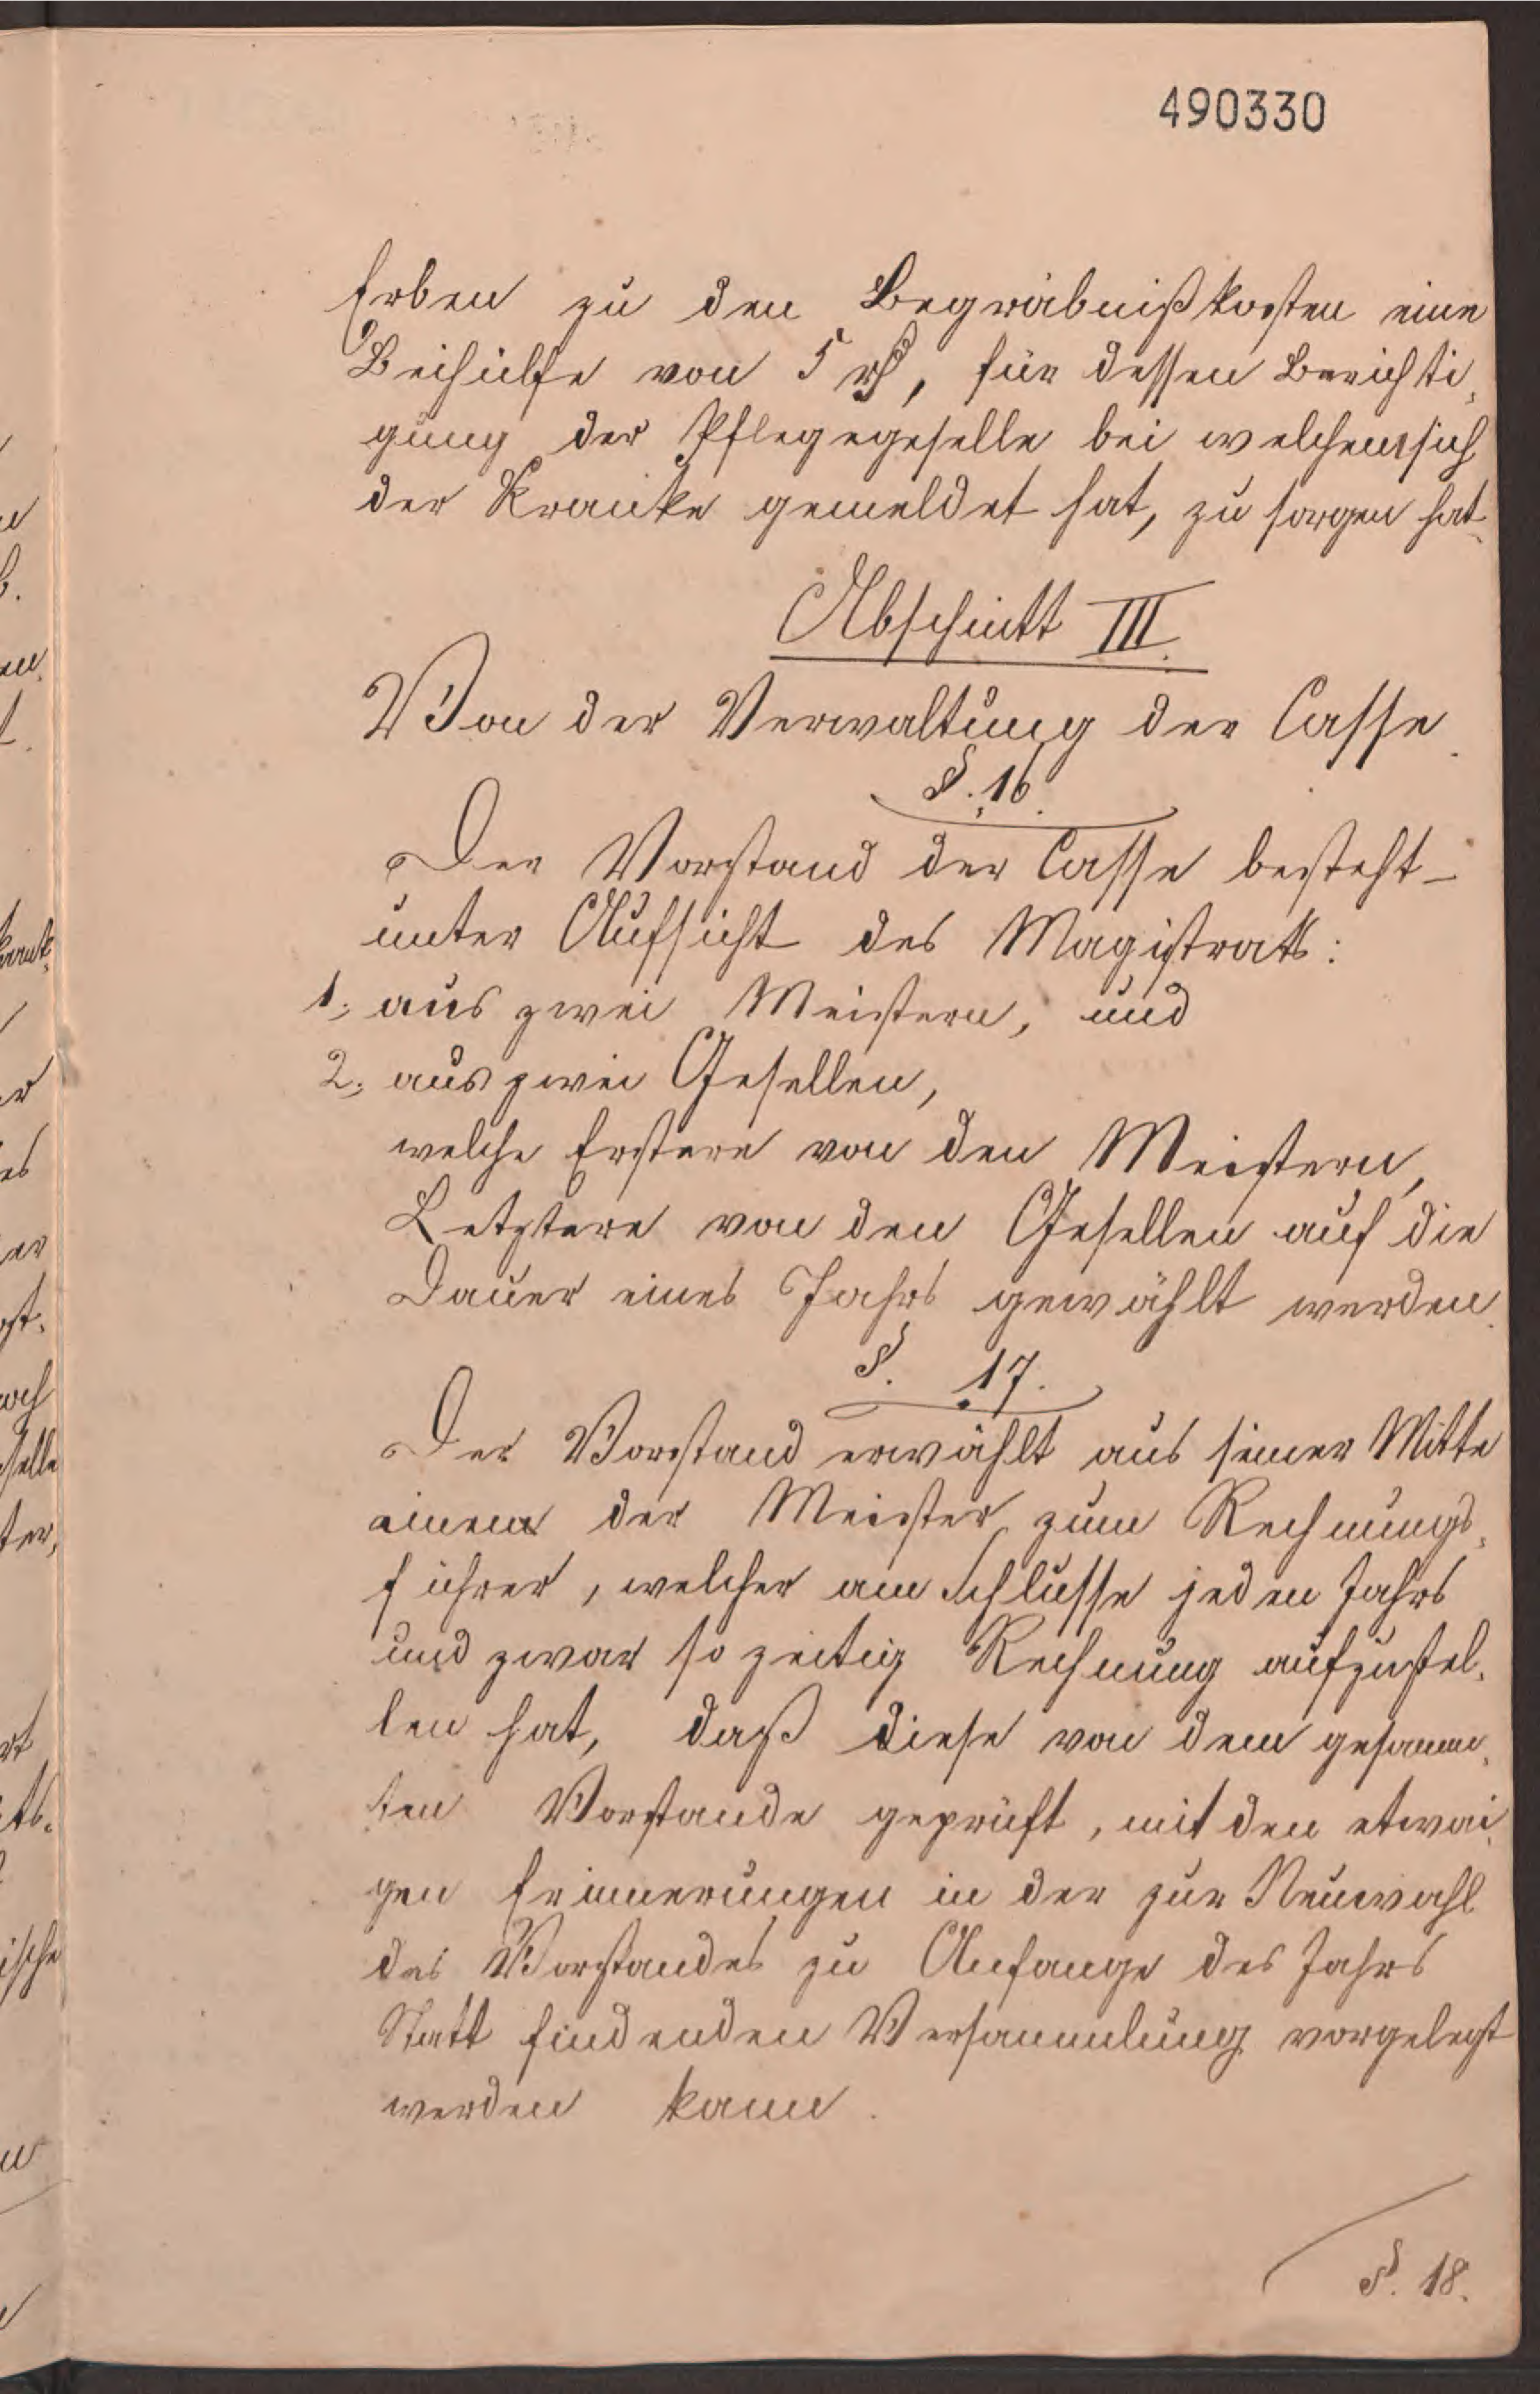 490330
Erben zu den Begräbnißkosten eine
Beihülfe von 5 rℓ, für dessen Berichti,
gung der Pflegegeselle bei welchem sich
der Kranke gemeldet hat, zu sorgen hat.
Abschnitt III.
Von der Verwaltung der Casse.
§. 16.
Der Vorstand der Casse besteht
unter Aufsicht des Magistrats:
1., aus zwei Meistern, und
2., aus zwei Gesellen,
welche Erstere von den Meistern,
Letztere von den Gesellen auf die
Dauer eines Jahrs gewählt werden.
§. 17.
Der Vorstand erwählt aus seiner Mitte
einen der Meister zum Rechnungs,
führer, welcher am Schlusse jeden Jahrs
und zwar so zeitig Rechnung aufzustel,
len hat, daß diese von dem gesamm,
ten Vorstande geprüft, mit den etwai,
gen Erinnerungen in der zur Neuwahl
des Vorstandes zu Anfange des Jahrs
Statt findenden Versammlung vorgelegt
werden kann.
§. 18.